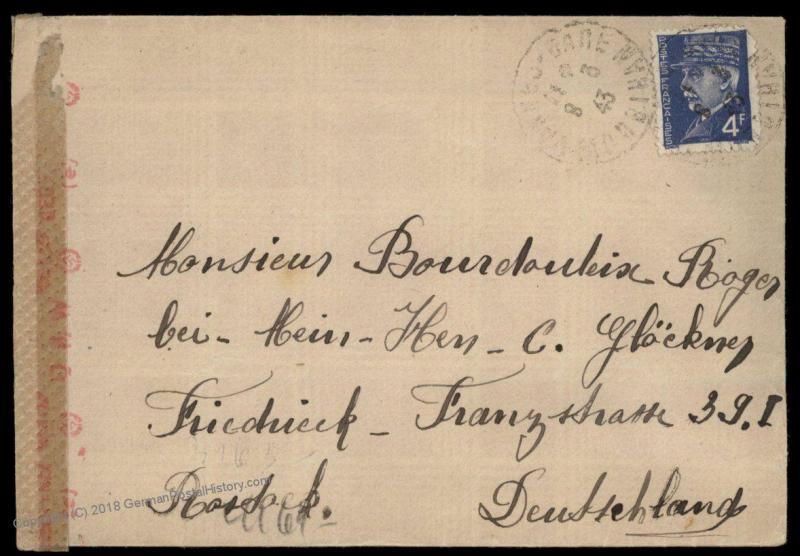 4F
POSTES FRANÇAISES
GARE
8
43
Monsieur Bourdouleix Roger
bei - Mein - Hen - C. Glöckner
Friedrieck - Franzstrasse 39.I
Rostock.
Deutschland
Copyright (C) 2018 GermanPostalHistory.com